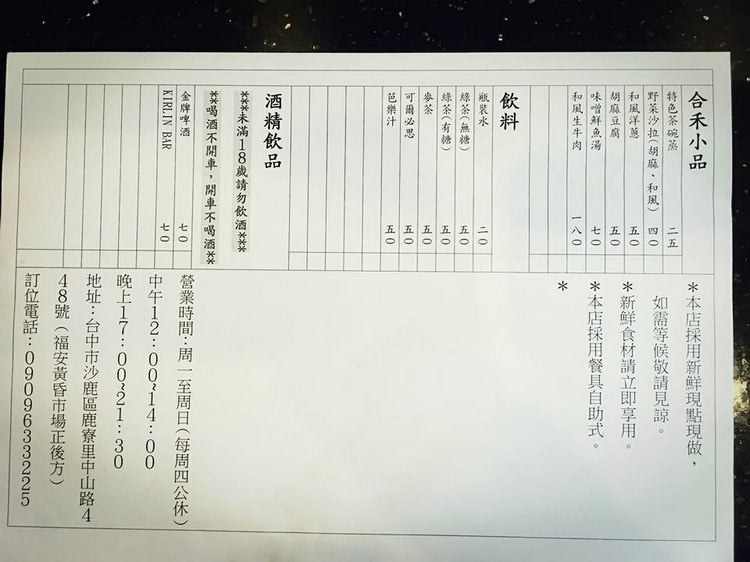 合禾小品
特色茶碗蒸 二五
野菜沙拉(胡麻、和風) 四〇
和風洋蔥 五〇
胡麻豆腐 五〇
味噌鮮魚湯 七〇
和風生牛肉 一八〇
飲料
瓶裝水 二〇
綠茶(無糖) 五〇
綠茶(有糖) 五〇
麥茶 五〇
可爾必思 五〇
芭樂汁 五〇
酒精飲品
***未滿18歲請勿飲酒***
**喝酒不開車,開車不喝酒**
金牌啤酒 七〇
KIRLIN BAR 七〇
*本店採用新鮮現點現做,
如需等候敬請見諒。
*新鮮食材請立即享用。
*本店採用餐具自助式。
*
營業時間:周一至周日(每周四公休)
中午12:00~14:00
晚上17:00~21:30
地址:台中市沙鹿區鹿寮里中山路4
48號(福安黃昏市場正後方)
訂位電話:0909633225